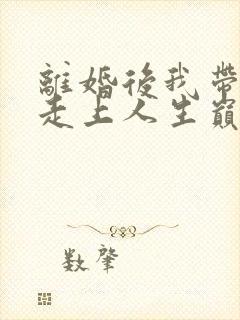 離婚後我帶
走上人生巔
数肇